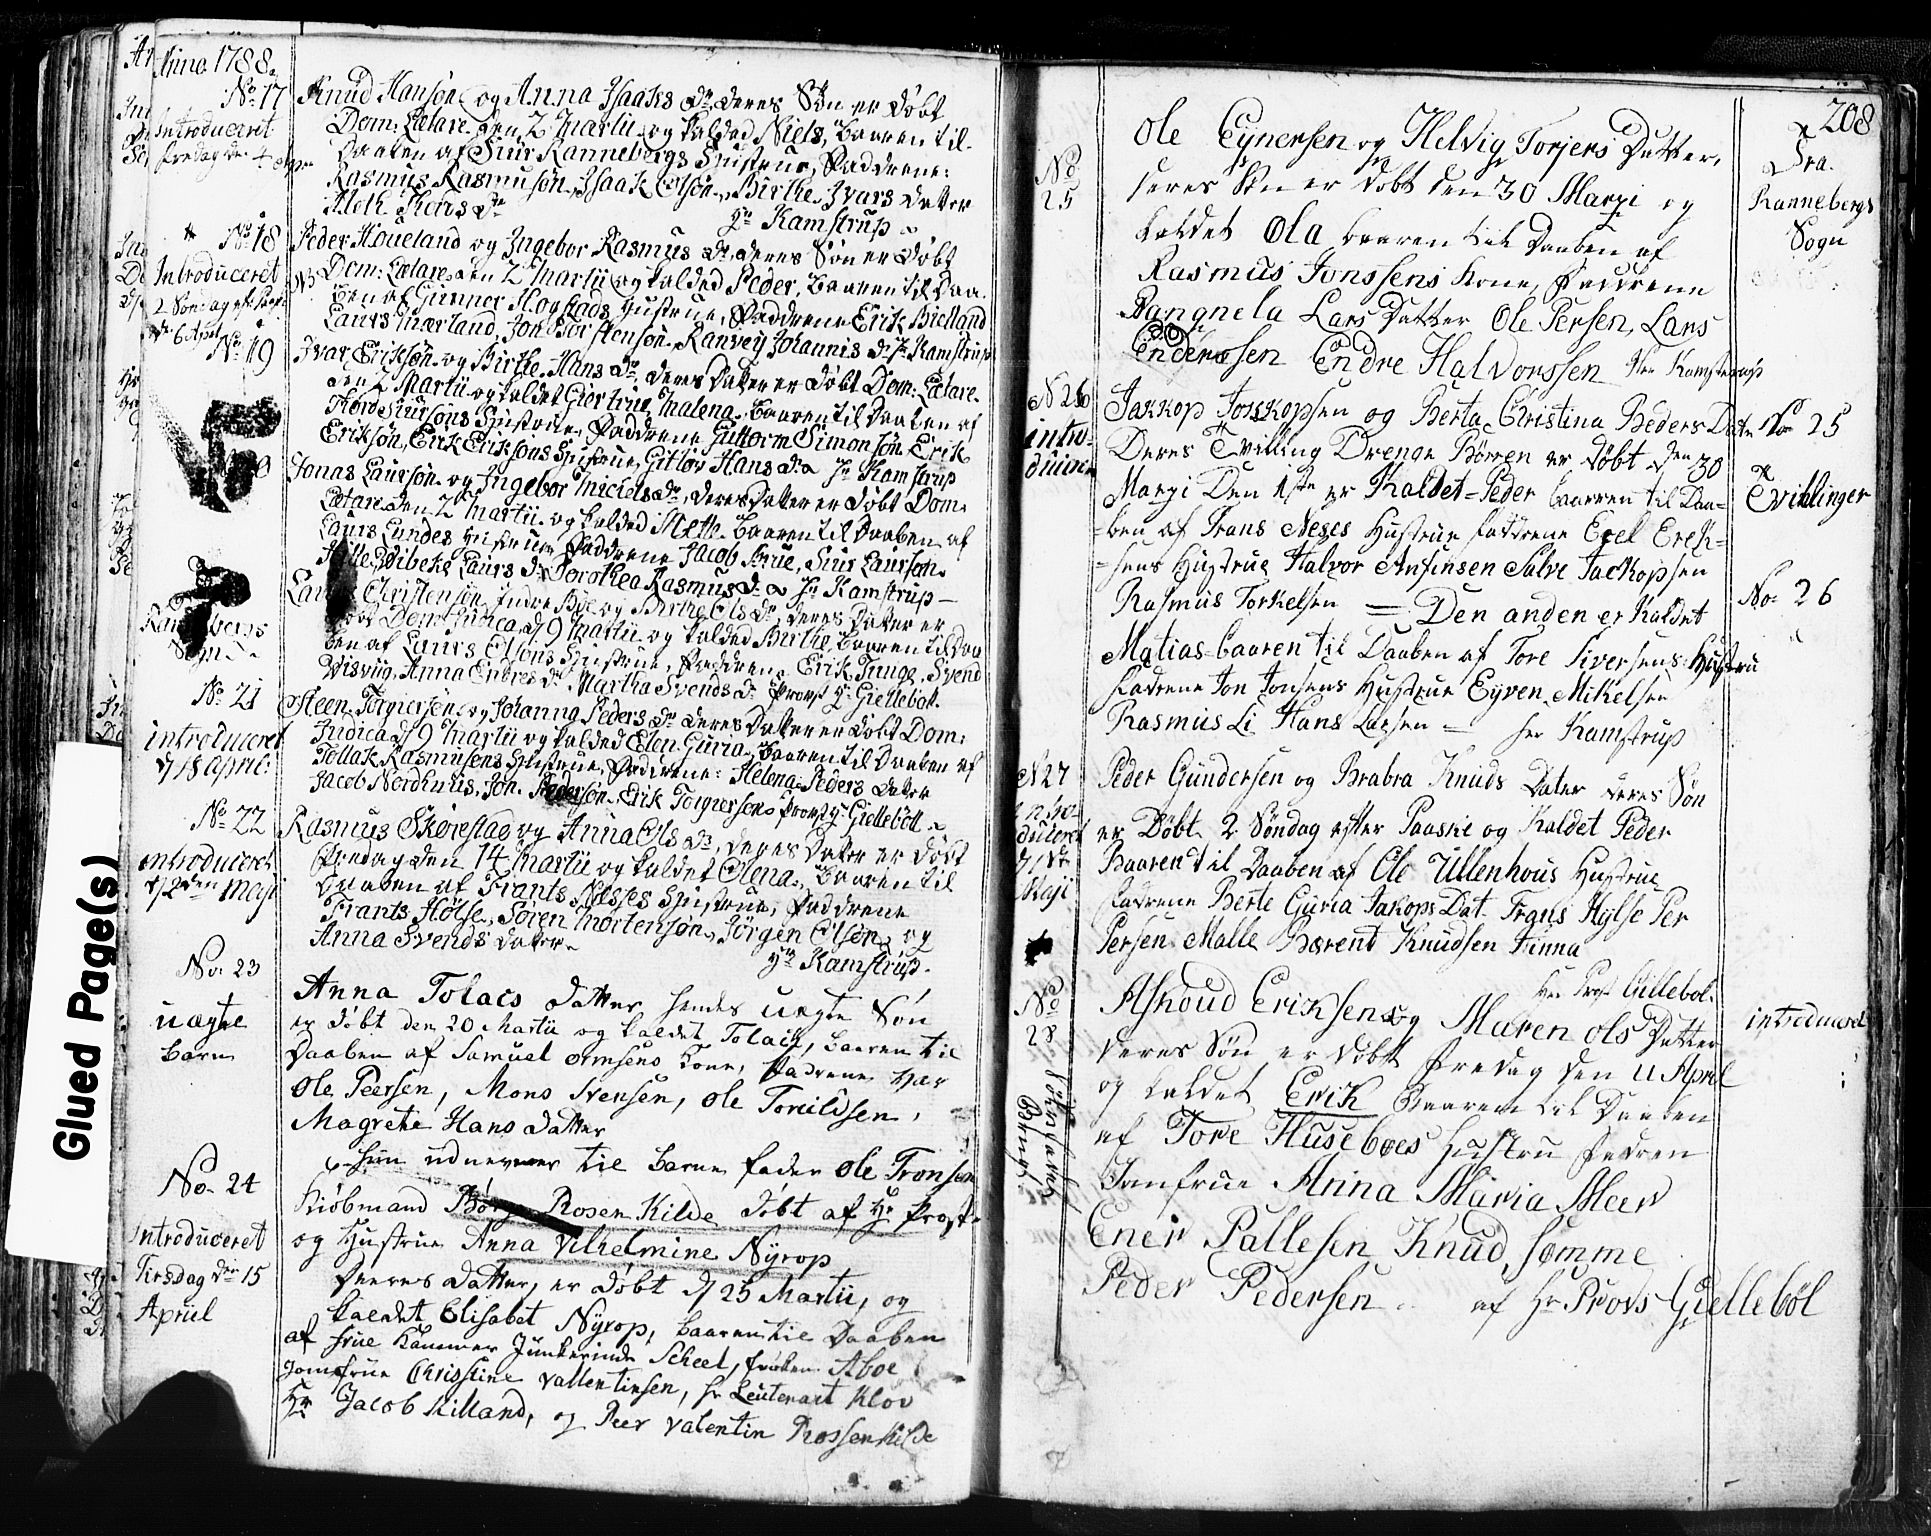 Anno 1788
No 17
Introduceret
fredag den 4
Knud Hansøn og Anna Isaaks dr, deres Søn er døbt
Dom: Lætare den 2 Martii og kalded Niels, baaren til
Daaben af Siur Rannebergs Hustrue, Faddrene:
Rasmus Rasmusøn, Isaak Olsøn, Birthe Ivars Datter
Hr Kamstrup
No 18
Introduceret
2 Søndag
d 6 April
Peder Houeland og Ingebor Rasmus dr, deres Søn er døbt
Dom: Lætare den 2 Martii og kalded Peder, baaren til Daa-
ben af Gunner Hogstads Hustrue, Faddrene Erik Bielland
Laurs Mærland, Jon Torstensøn, Ranvey Johannis dr Hr Kamstrup
No 19
Ivar Eriksøn og Birthe Hans dr, deres Datter er døbt Dom: Lætare
den 2 Martii og kaldet Giertrue Malena, baaren til Daaben af
Tord Siursøns Hustrue, Faddrene Guttorm Simonsøn, Erik
Eriksøn, Erik Eriksøns Hustrue, Gitlov Hans dr Hr Kamstrup
Jonas Laursøn og Ingebor Michels dr, deres Datter er døbt Dom:
Lætare den 2 Martii og kalded Mette, baaren til Daaben af
Laurs Lundes Hustrue, Faddrene Jacob Brue, Siur Laursøn
Vibeke Laurs dr Dorothea Rasmus dr Hr Kamstrup
Christensøn Indre Bøe og Birthe Ols dr, deres Datter er
døbt Dom: Judica d 9 Martii og kalded Birthe, baaren til Daa
ben af Laurs Olsøns Hustrue, Faddrene Erik Tunge, Svend
Visviig, Anna Endres dr, Martha Svends dr Provst Hr Giellebøll
No 21
introduceret
d 18 april
Steen Torgiersøn og Johanna Peders dr deres Datter er døbt Dom:
Judica d 9 Martii og kalded Elen Guria, baaren til Daaben af
Tollak Rasmusens Hustrue, Faddrene: Helena Peders Datter
Jacob Nordhuus, Jon Pedersøn, Erik Torgiersøns Provst Hr Giellebøll
No 22
introduceret
d 2den Maji
Rasmus Skeiestad og Anna Ols dr, deres Datter er døbt
Fredag den 14 Martii og kaldet Olena, baaren til
Daaben af Frants Næsses Hustrue, Faddrene
Frants Hølse, Søren Mortensøn, Jörgen Olsøn og
Anna Svends Datter
Hr Kamstrup
No 23
uægte
barn
Anna Tolacs datter hendes uægte Søn
er døbt den 20 Martii og kaldet Tolach, baaren til
Daaben af Samuel Ormsens kone, Fadrene var
Ole Peersen, Mons Svensen, Ole Torildsen,
Magrete Hans datter
hun udnevner til barne fader Ole Tronsen
No 24
Introduceret
Tirsdag den 15
Apriil
kiøbmand Rosenkilde døbt af Hr Prost
og Hustrue Anna Vilhelmine Nyrop
Deeres datter, er døbt d 25 Martii, og
kaldet Elisabet Nyrop, baaren til Daaben
af frue Kammer Junkerinde Scheel, frøken Aboe
Jomfrue Christine Vallentinsen, Hr Leutenant Klov
Hr Jacob Killand, og Peer Valentin Rossenkilde
208
No
25
Ole Eynersen og Helvig Torjers Datter,
deres Søn er døbt den 30 Marzi og
kaldet Ola baaren til Daaben af
Rasmus Jonssens kone, Faddrene
Rangnela Lars Datter Ole Persen, Lars
Endersen Endre Halvorssen Her Kamstrup
Fra
Rannebergs
Sogn
N 26
intro-
duiceret
Jakkop Josskopsen og Berta Christina Peders Dater
Deres Tvilling Drenge Børren er døbt den 30
Marzi Den 1ste er Kaldet Peder baarren til Daa-
ben af Frans Neses Hustrue fadrene Erek Erek-
sens Hustrue Halvor Ansinsen Salve Jackopsen
Rasmus Torkelsen Den anden er Kaldet
Matias baaren til Daaben af Tore Siversens Hustru
fadrene Jon Jonsens Hustrue Eyven Mikelsen
Rasmus Li Hans Larsen Her Kamstrup
No 25
Tvillinger
No 26
N 27
intro-
duiceret
Maji
Peder Gundersen og Brabra Knuds Dater deres Søn
er Døbt 2 Søndag efter Paaske og Kaldet Peder
Baaren til Daaben af Ole Ullenhous Hustrue
fadrene Berte Guria Jakops Dat Frans Hylse Per
Persen Malle Barent Knudsen Finna
Her Prost Gillebol
No
28
Asnoud Eriksen og Maren Ols Datter
deres Søn er døbt fredag den 11 April
og kaldet Erik baaren til Daaben
af Tore Huseboes Hustru fadren
Jomfrue Anna Maria Meer
Ener Pallesen Knud Somme
Peder Pedersen af Hr Provs Giellebøl
introduceret
Glued Page(s)